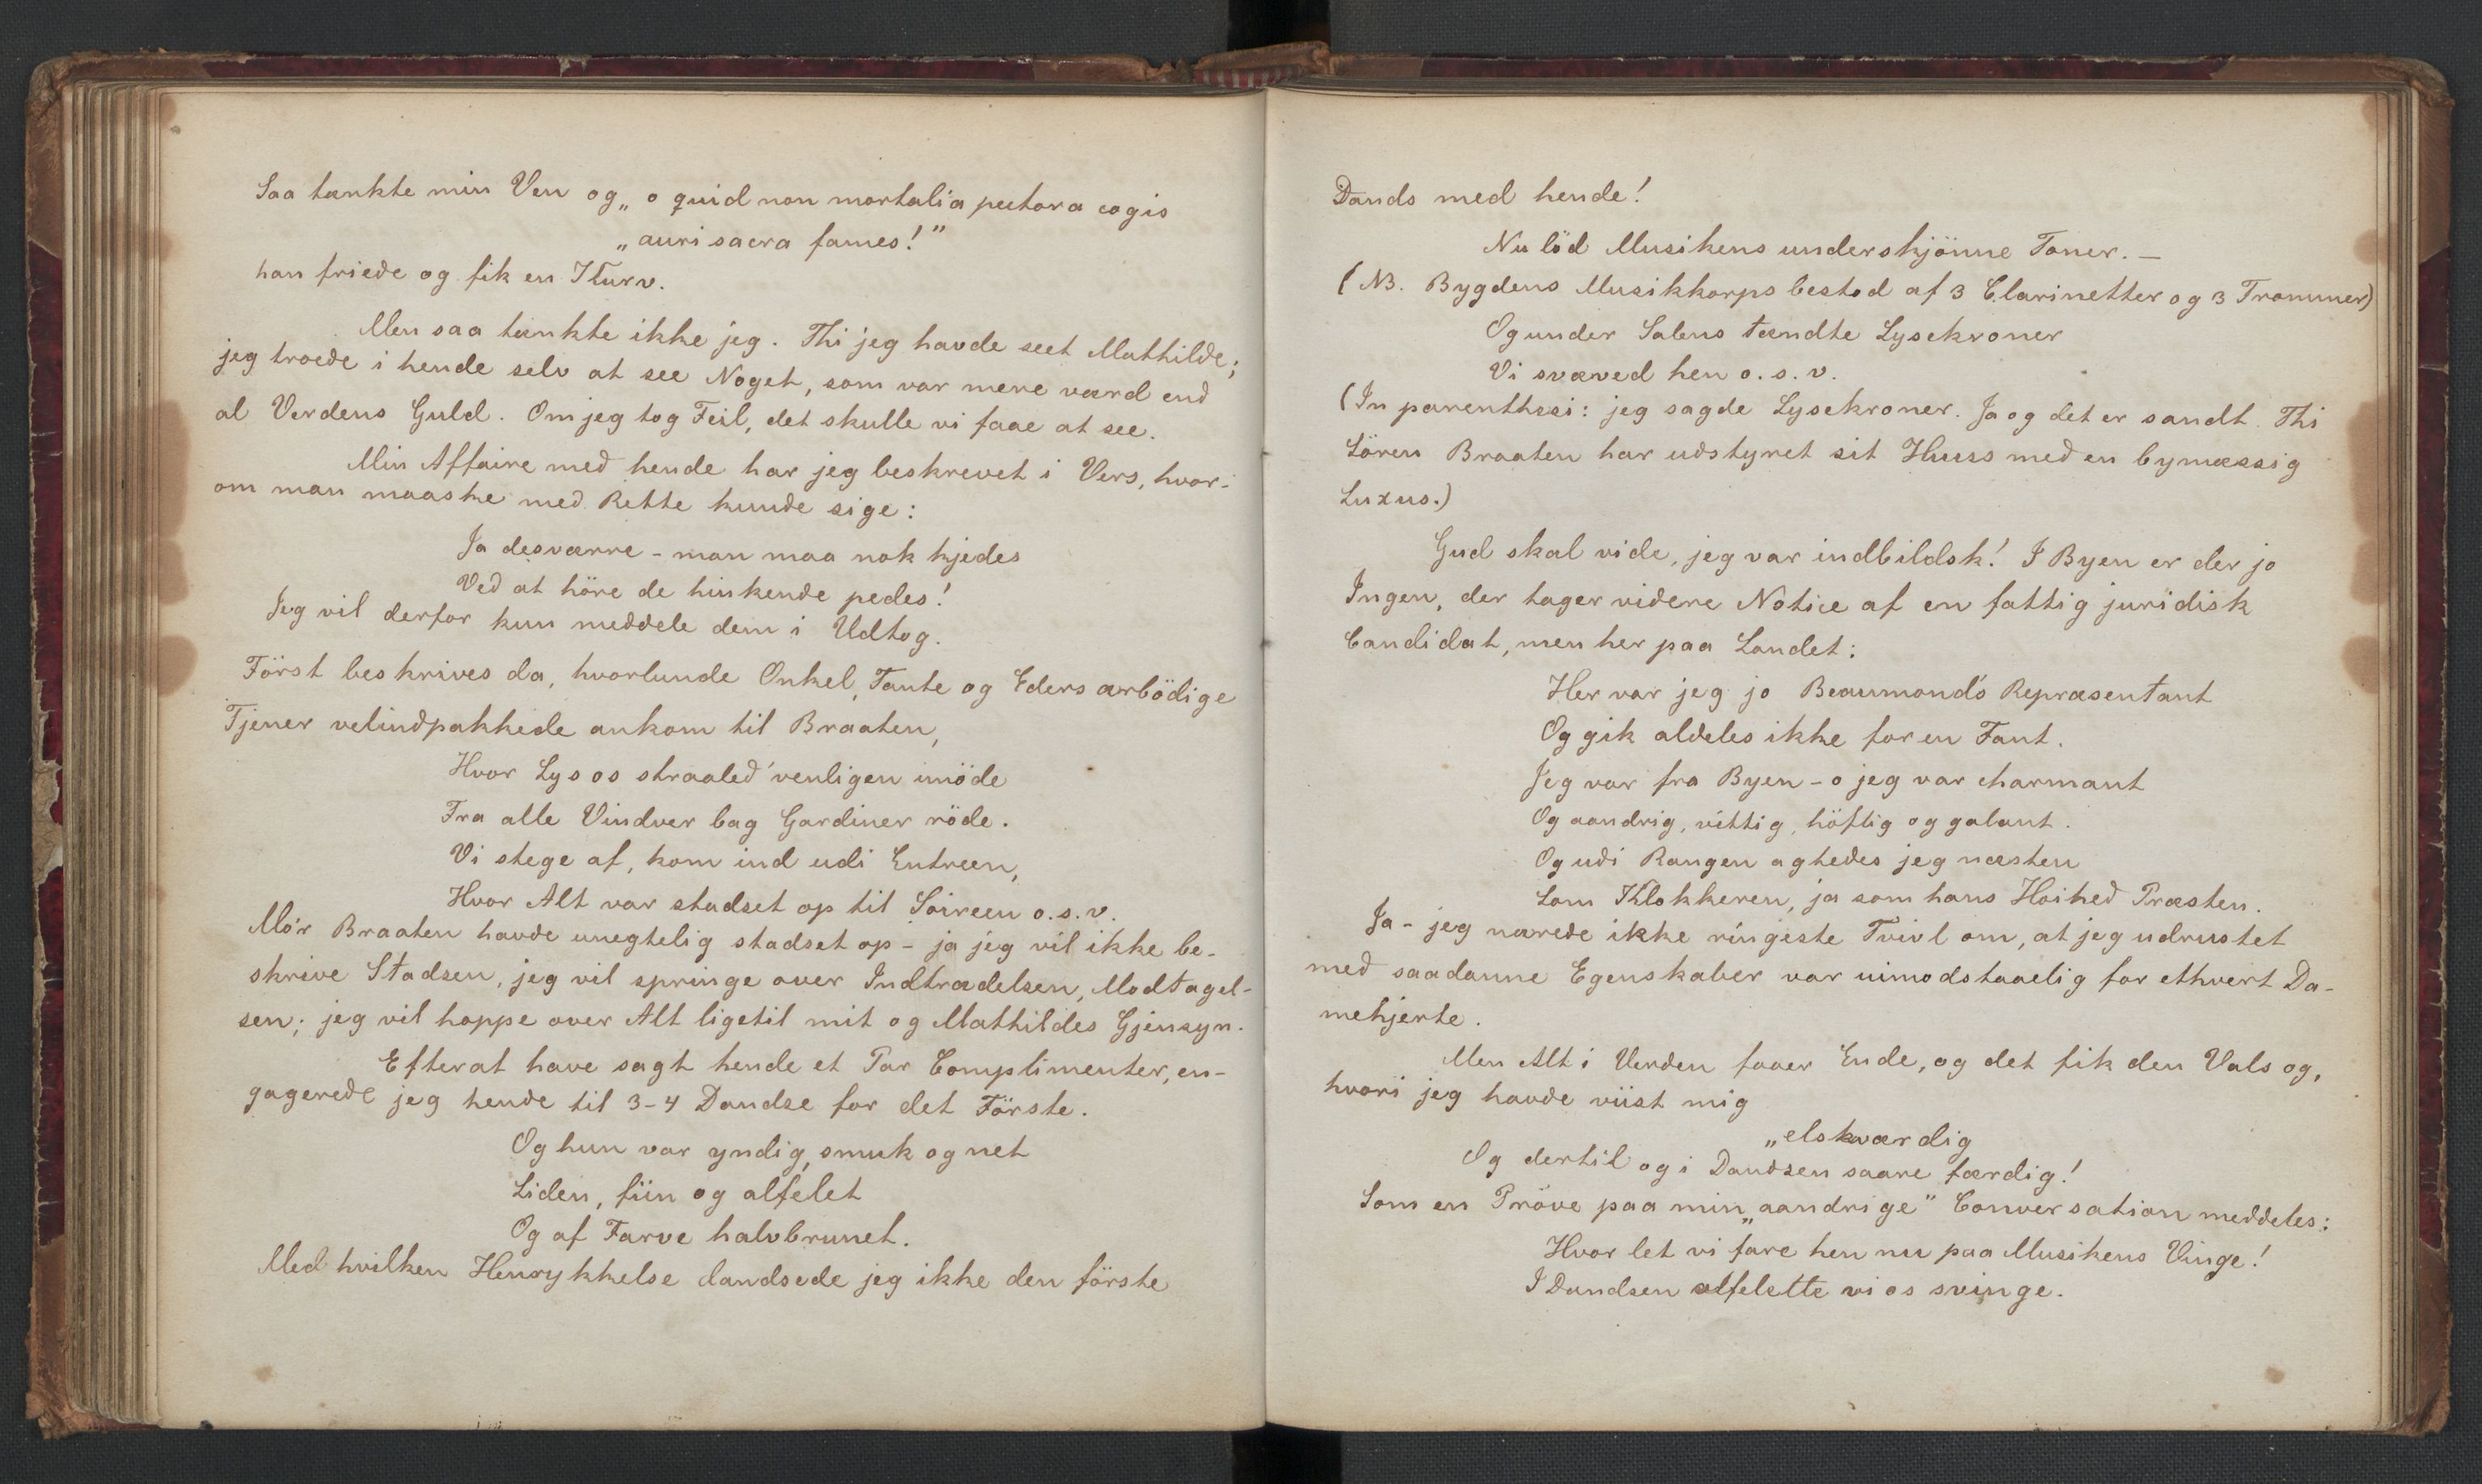 Saa tænkte min Ven og „o quid non mortalia pectora cogis
„auri sacra fames!"
han friede og fik en Kurv.
Men saa tænkte ikke jeg. Thi jeg havde seet Mathilde;
jeg troede i hende selv at see Noget, som var mere værd end
al Verdens Guld. Om jeg tog Feil, det skulle vi faae at see.
Min Affaire med hende har jeg beskrevet i Vers, hvor-
om man maaske med Rette kunde sige:
Ja desværre - man maa nok kjedes
Ved at höre de hinkende pedes!
Jeg vil derfor kun meddele dem i Udtog.
Först beskrives da, hvorlunde Onkel, Tante og Eders ærbödige
Tjener velindpakkede ankom til Braaten,
Hvor Lys os straaled' venligen imöde
Fra alle Vindver bag Gardiner röde.
Vi stege af, kom ind udi Entreen,
Hvor Alt var stadset op til Soireen o.s.v.
Mo'r Braaten havde unegtelig stadset op - ja jeg vil ikke be-
skrive Stadsen, jeg vil springe over Indtrædelsen, Modtagel-
sen; jeg vil hoppe over Alt ligetil mit og Mathildes Gjensyn.
Efterat have sagt hende et Par Complimenter, en-
gagerede jeg hende til 3-4 Dandse for det Förste.
Og hun var yndig, smuk og net
Liden, fiin og alfelet
Og af Farve halvbrunet.
Med hvilken Henrykkelse dandsede jeg ikke den förste
Dands med hende!
Nu löd Musikens underskjönne Toner. —
(NB. Bygdens Musikkorps bestod af 3 Clarinetter og 3 Trommer)
Og under Salens tændte Lysekroner
Vi svæved hen o.s.v.
(In parenthesi: jeg sagde Lysekroner. Ja og det er sandt. Thi
Sören Braaten har udstyret sit Huus med en bymæssig
Luxus.)
Gud skal vide, jeg var indbildsk! I Byen er der jo
Ingen, der tager videre Notice af en fattig juridisk
Candidat, men her paa Landet:
Her var jeg jo Beaumond's Repræsentant
Og gik aldeles ikke for en Fant.
Jeg var fra Byen - o jeg var charmant
Og aandrig, vittig, höflig og galant.
Og udi Rangen agtedes jeg næsten
Som Klokkeren, ja som hans Hoihed Præsten.
Ja - jeg nærede ikke ringeste Tvivl om, at jeg udrustet
med saadanne Egenskaber var uimodstaaelig for ethvert Da-
mehjerte.
Men Alt i Verden faaer Ende, og det fik den Vals og,
hvori jeg havde viist mig
„elskværdig
Og dertil og i Dandsen saare færdig!
Som en Pröve paa min „aandrige" Conversation meddeles:
Hvor let vi fare hen nu paa Musikens Vinge!
I Dandsen alfelette vi os svinge.